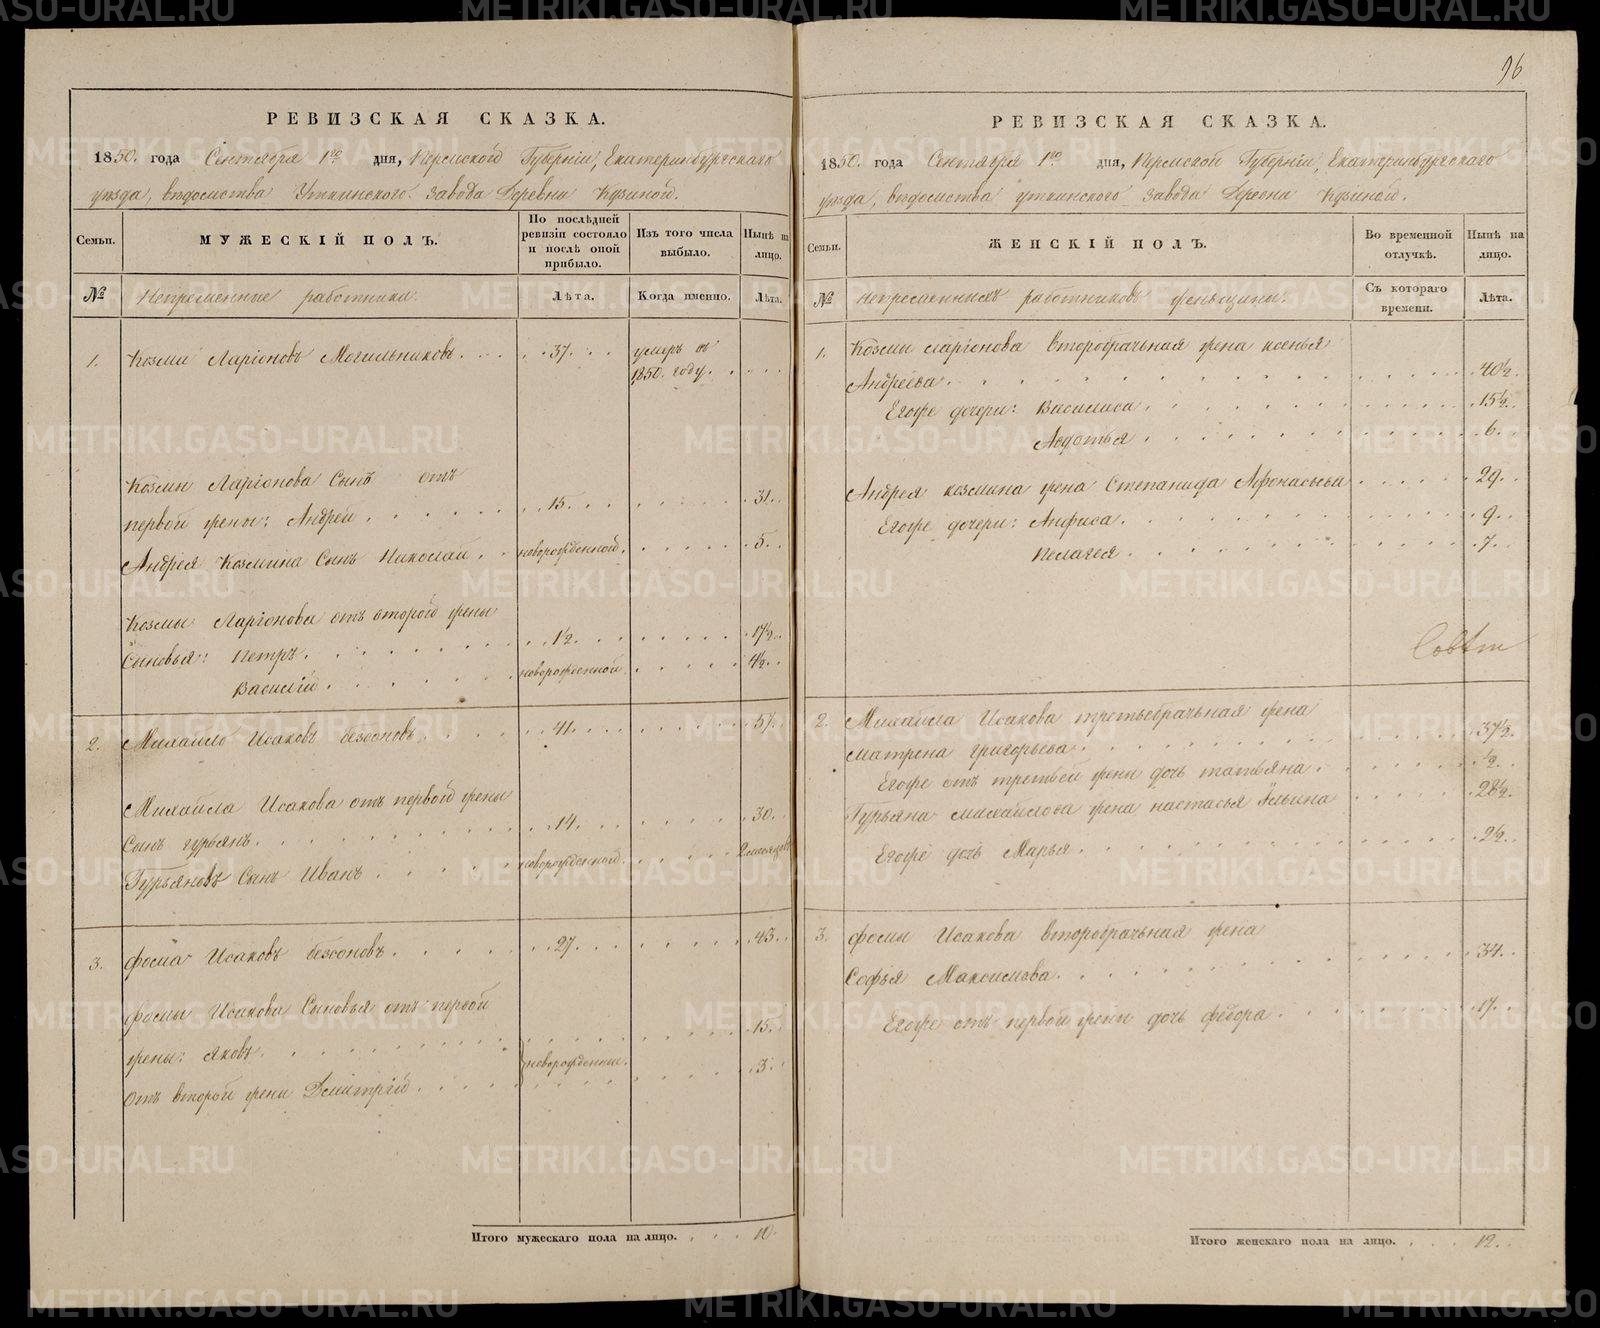 96
РЕВИЗСКАЯ СКАЗКА.
1850. года Сентября 1го дня, Пермской Губерніи, Екатеринбургскаго
уѣзда, вѣдомства Уткинского завода Деревни Кузиной.
Семьи.
МУЖЕСКІЙ ПОЛЪ.
По послѣдней ревизіи состояло и послѣ оной прибыло.
Изъ того числа выбыло.
Нынѣ на лицо.
№
Непременные работники.
Лѣта.
Когда именно.
Лѣта.
1. Козма Ларіоновъ Могильниковъ. 37. умеръ въ
1850. году.
Козмы Ларіонова Сынъ отъ
первой жены: Андрей 15. 31.
Андрея Козмина Сынъ Николай новорожденной. 5.
Козмы Ларіонова отъ второй жены
Сыновья: Петръ. 1½. 17½.
Василій новорожденной 4½.
2. Михайло Исаковъ безсоновъ. 41. 57.
Михайла Исакова отъ первой жены
Сынъ гурьянъ. 14. 30.
Гурьяновъ Сынъ Иванъ новорожденной. 2 месяцовъ
3. фома Исаковъ безсоновъ. 27. 43.
фомы Исакова Сыновья отъ первой
жены: яковъ. 15.
новорожденные.
отъ второй жены Дмитрій 3.
Итого мужескаго пола на лицо. 10.
РЕВИЗСКАЯ СКАЗКА.
1850. года Сентября 1го дня, Пермской Губерніи, Екатеринбургскаго
уѣзда, вѣдомства уткинского завода Деревни Кузиной.
Семьи.
ЖЕНСКІЙ ПОЛЪ.
Во временной отлучкѣ.
Нынѣ на лицо.
№
Непременныхъ работниковъ женьщины.
Съ котораго времени.
Лѣта.
1. Козмы ларіонова второбрачьная жена ксенья
Андреева. 40½.
Егоже дочери: Василиса. 15½.
Авдотья 6.
Андрея козмина жена Степанида Афонасьева 29.
Егоже дочери: Анфиса. 9.
Пелагея 7.
2. Михайла Исакова третьебрачьная жена
матрена григорьева. 37½.
Егоже отъ третьей жены дочь татьяна. ½.
Гурьяна михайлова жена настасья Ильина 28½.
Егоже дочь Марья 2½.
3. фомы Исакова второбрачьная жена
Софья Максимова. 34.
Егоже отъ первой жены дочь федора 17.
Итого женскаго пола на лицо. 12.
METRIKI.GASO-URAL.RU